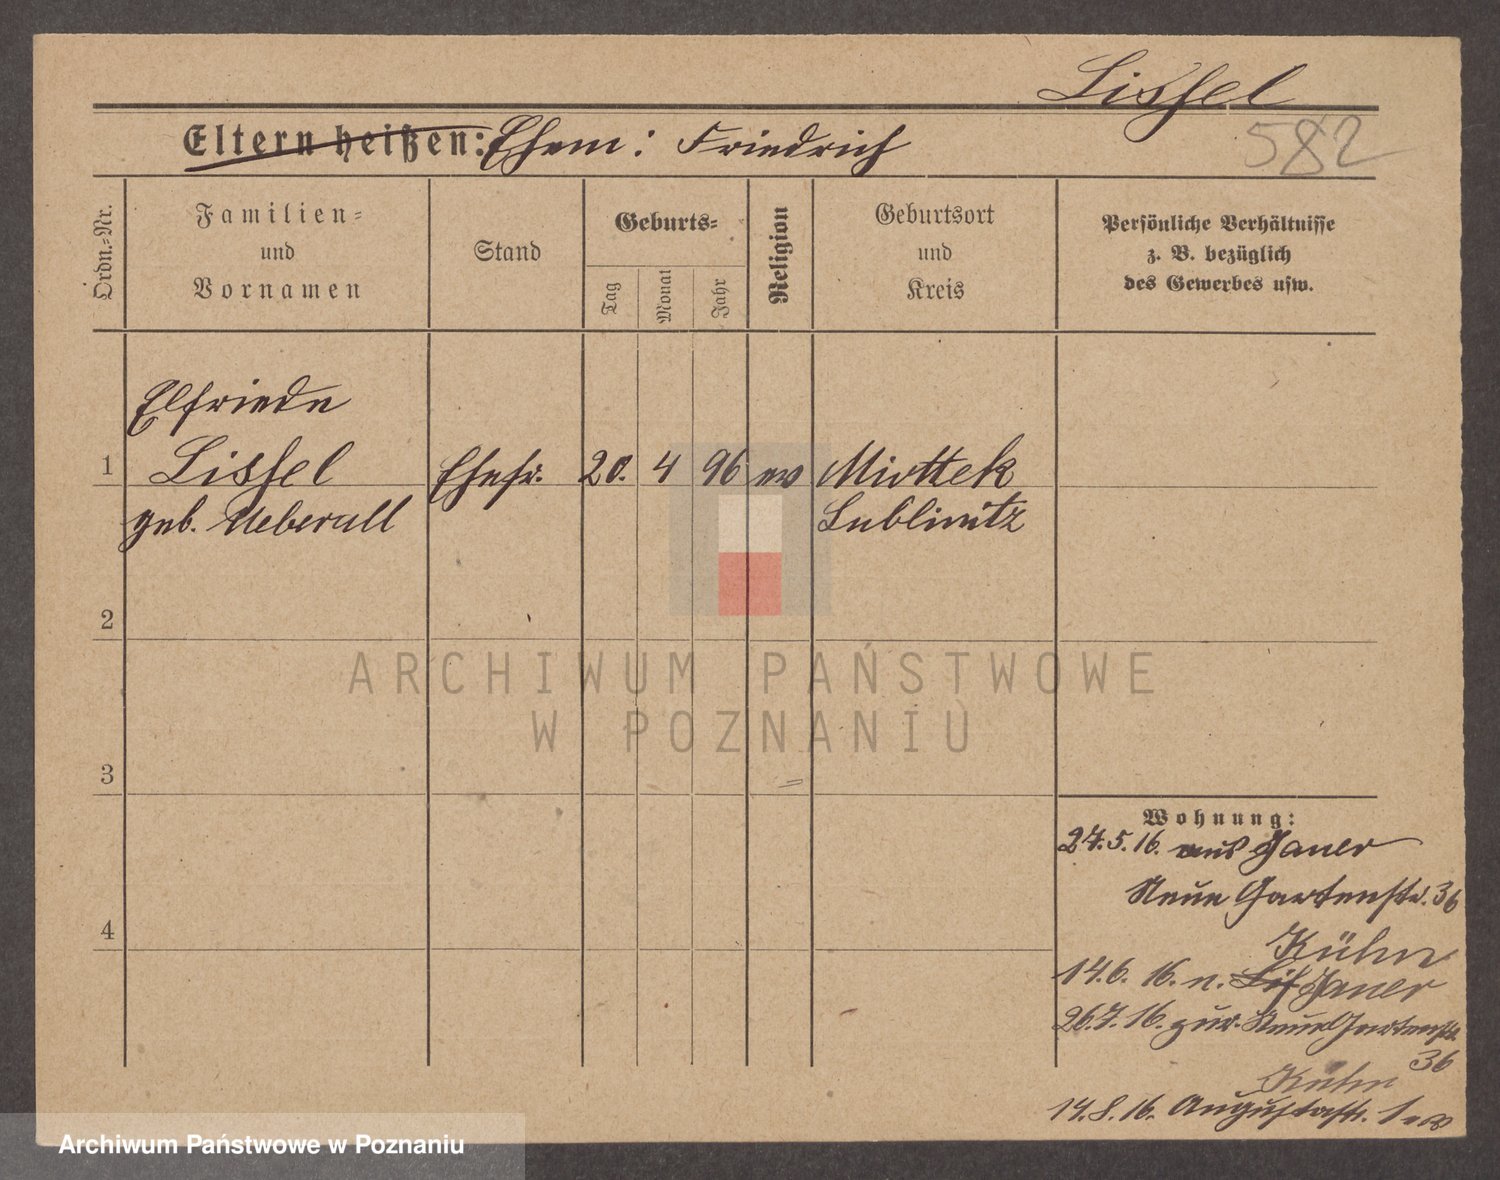 Lissel
582
Eltern heißen: Ehem: Friedrich
Ordn.-Nr.
Familien-
und
Vornamen
Stand
Geburts-
Tag
Monat
Jahr
Religion
Geburtsort
und
Kreis
Persönliche Verhältnisse
z. B. bezüglich
des Gewerbes usw.
Elfriede
1 Lissel Ehefr. 20. 4 96 ev
geb. Ueberall Lublinitz
2
3
4
Wohnung:
27.5.16. aus Jauer
Neue Gartenstr. 36
Kühn
14.6.16. n. Jauer
26.7.16. zur. Neue Gartenstr.
36
Kühn
14.8.16. Augustastr. 1
ARCHIWUM PAŃSTWOWE
W POZNANIU
Archiwum Państwowe w Poznaniu